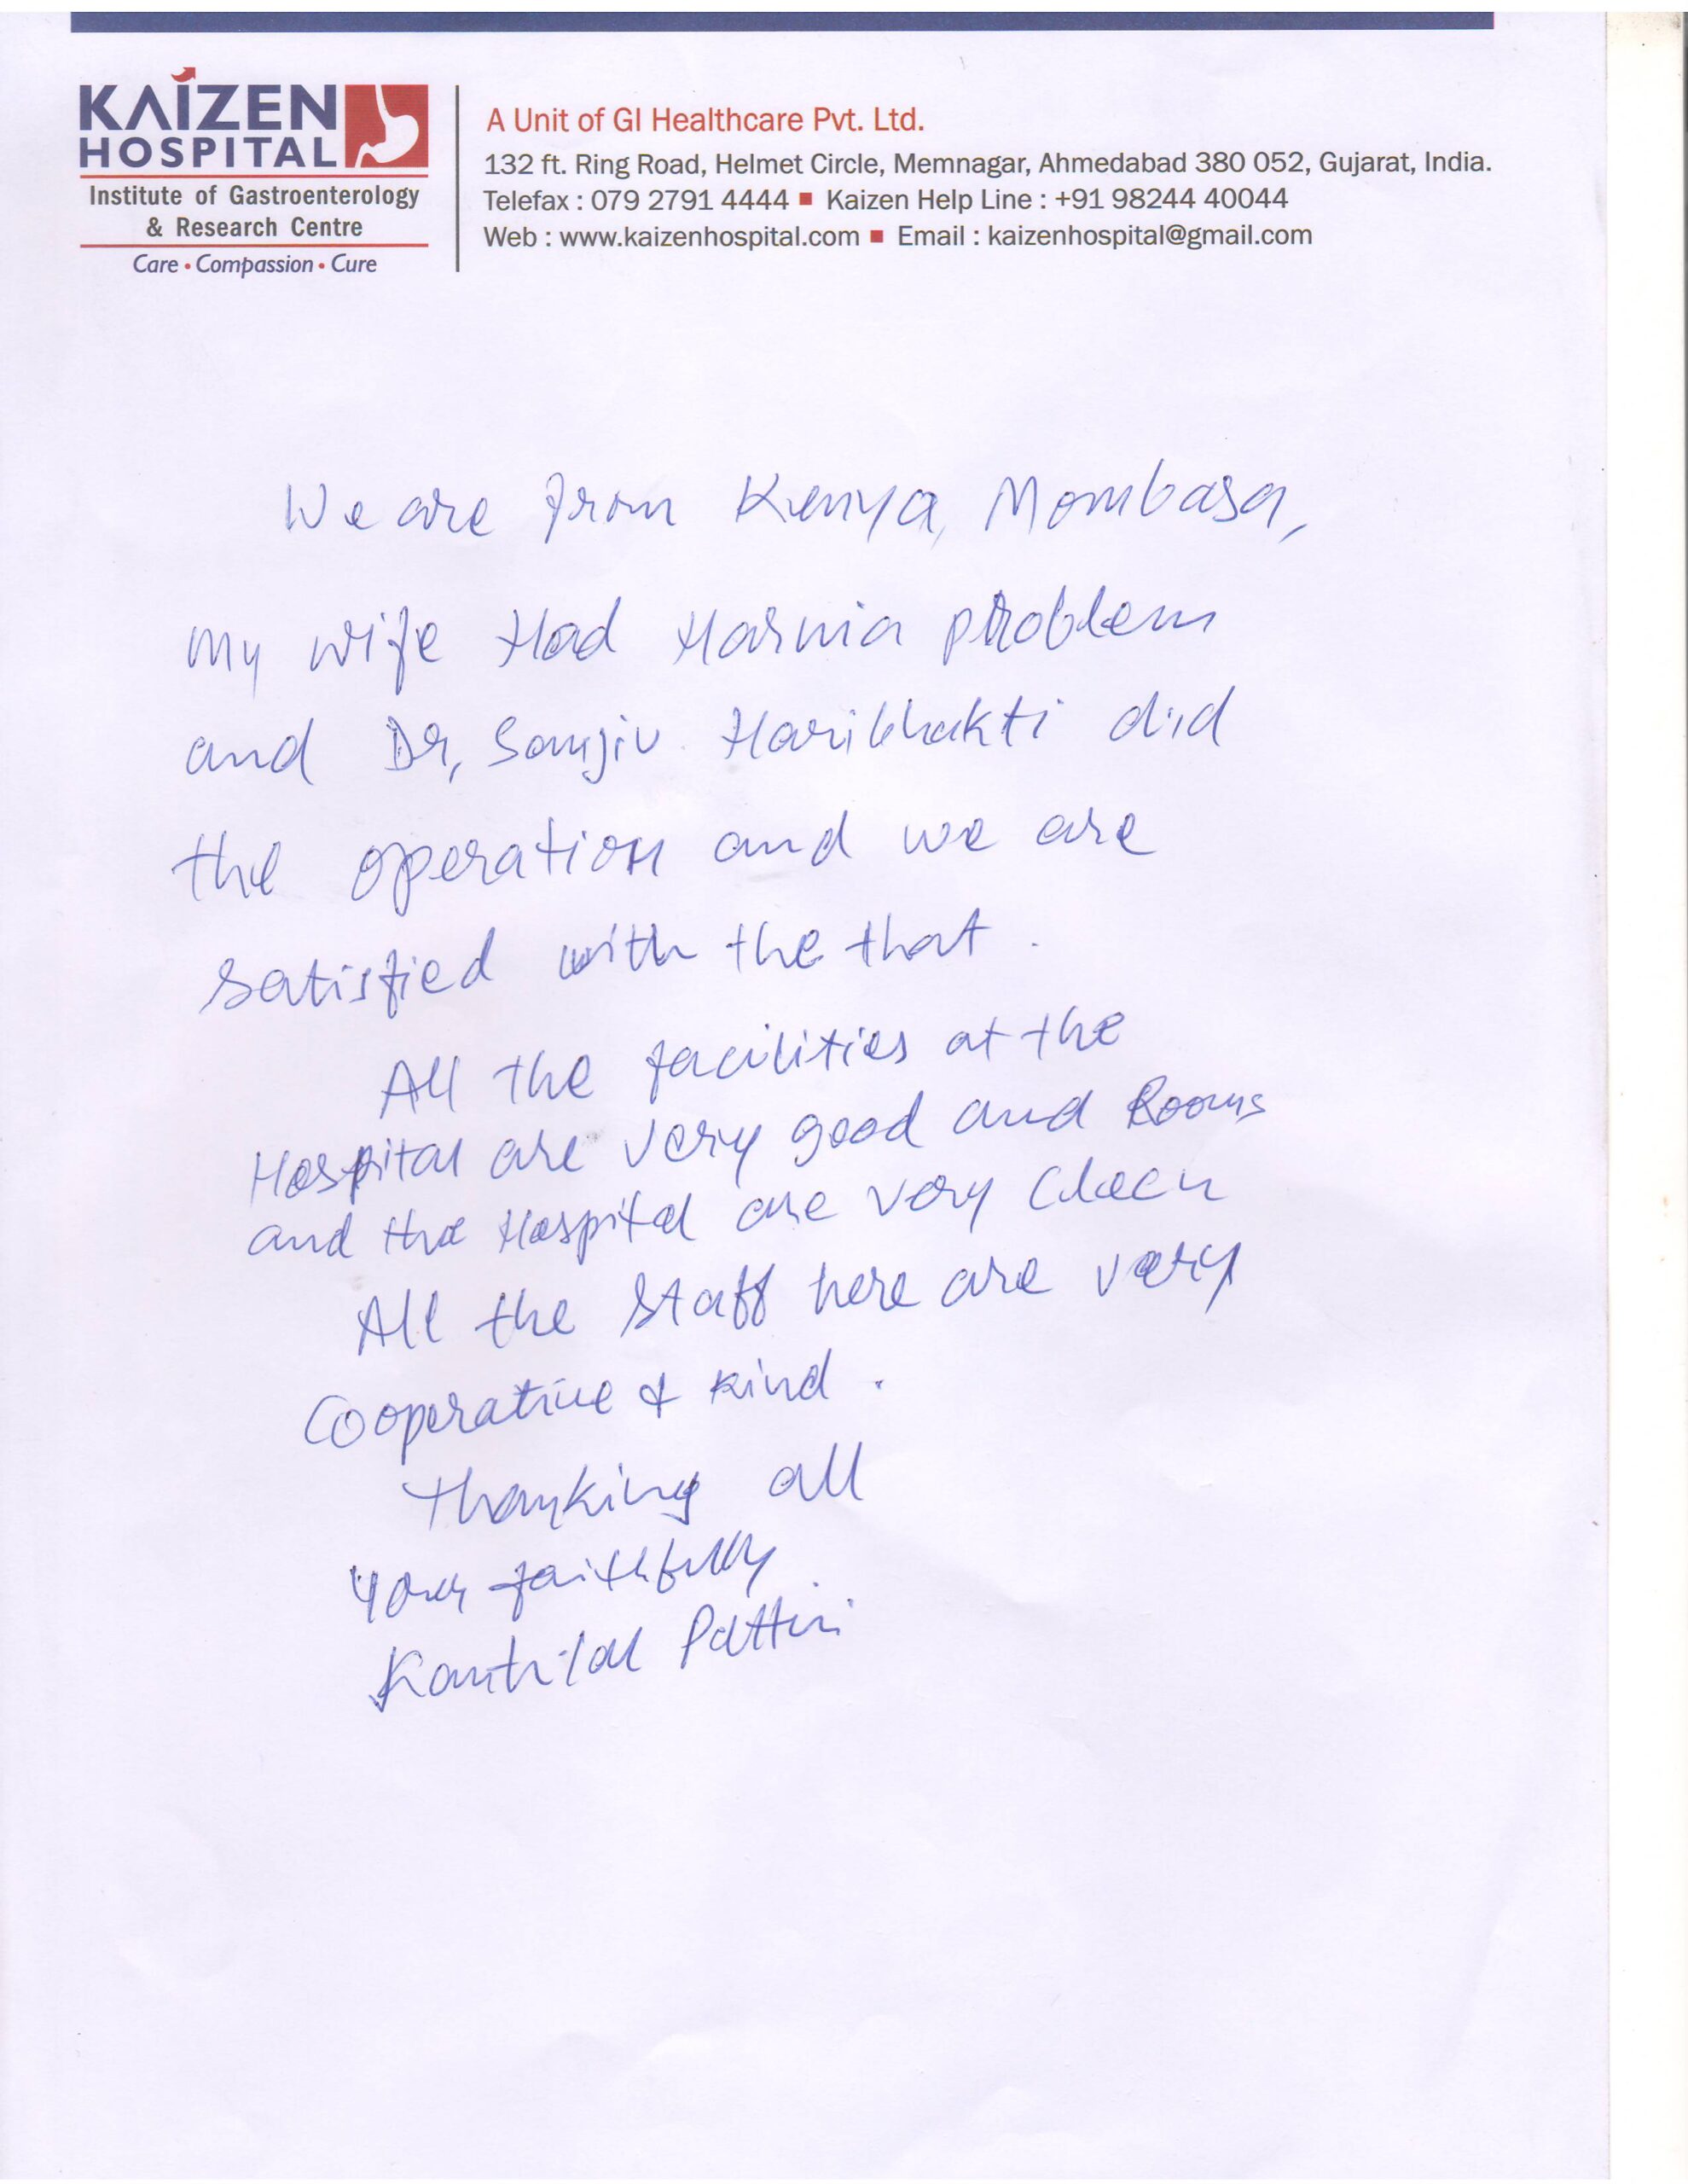 KAIZEN
HOSPITAL
Institute of Gastroenterology
& Research Centre
Care • Compassion • Cure
A Unit of GI Healthcare Pvt. Ltd.
132 ft. Ring Road, Helmet Circle, Memnagar, Ahmedabad 380 052, Gujarat, India.
Telefax : 079 2791 4444 ■ Kaizen Help Line : +91 98244 40044
Web : www.kaizenhospital.com ■ Email : kaizenhospital@gmail.com
We are from Kenya, Mombasa,
my wife Had Harnia problem
and Dr, Sanjiv Haribhakti did
the operation and we are
satisfied with the that.
All the facilities at the
Hospital are very good and Rooms
and the Hospital are very Clean
All the staff here are very
Cooperative & kind.
Thanking all
Your faithfully
Kantilal